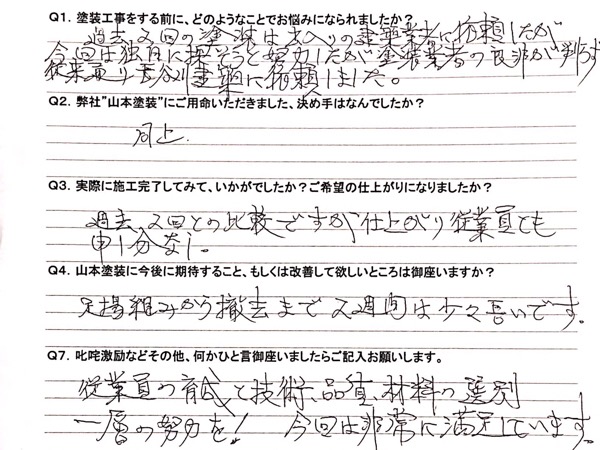 Q1. 塗装工事をする前に、どのようなことでお悩みになられましたか？
過去2回の塗装は出入りの建築業者に依頼したが
今回は独自に探そうと努力したが塗装業者の良非が判らず
従来通り 建築 に依頼しました。
Q2. 弊社”山本塗装”にご用命いただきました、決め手はなんでしたか？
同上.
Q3. 実際に施工完了してみて、いかがでしたか？ご希望の仕上がりになりましたか？
過去、2回との比較ですが仕上がり従業員とも
申し分なし。
Q4. 山本塗装に今後に期待すること、もしくは改善して欲しいところは御座いますか？
足場組みから撤去まで2週間は少々長いです。
Q7. 叱咤激励などその他、何かひと言御座いましたらご記入お願いします。
従業員の育成と技術、品質、材料の選別
一層の努力を！ 今回は非常に満足しています。